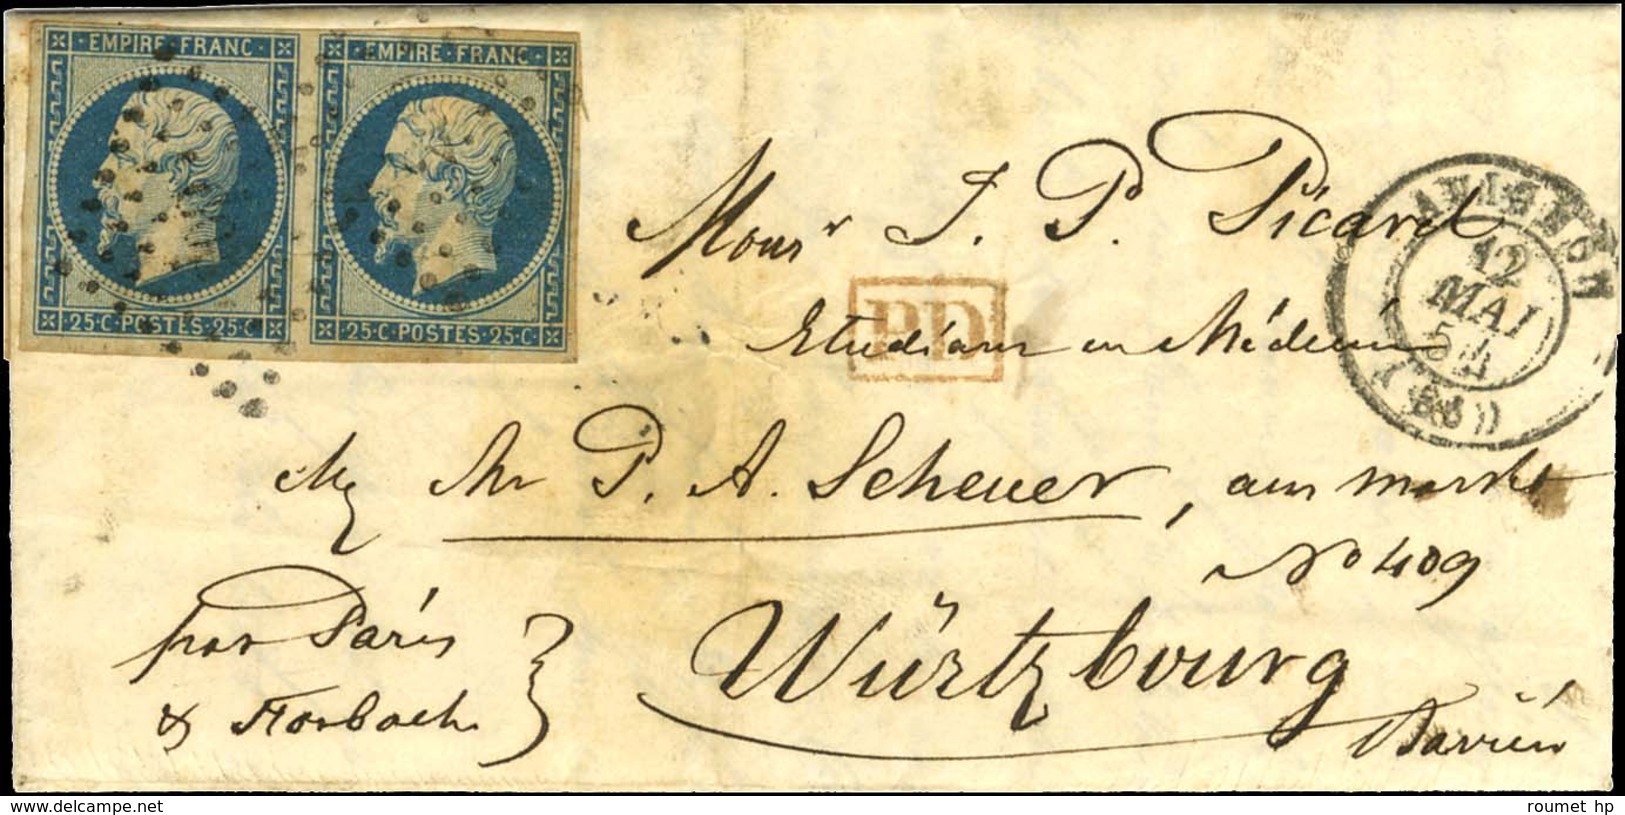 EMPIRE·FRANC·
EMPIRE·FRANC·
25·C·POSTES·25·C·
25·C·POSTES·25·C·
AVIGNON
12
MAI
54
PD
Monsr J. P. Picard
Etudiant en Médecine
P. A. Scheuer, am markt
No 409
par Paris
& Forbach
Würtzbourg
Bavière
delcampe.net
roumet hp